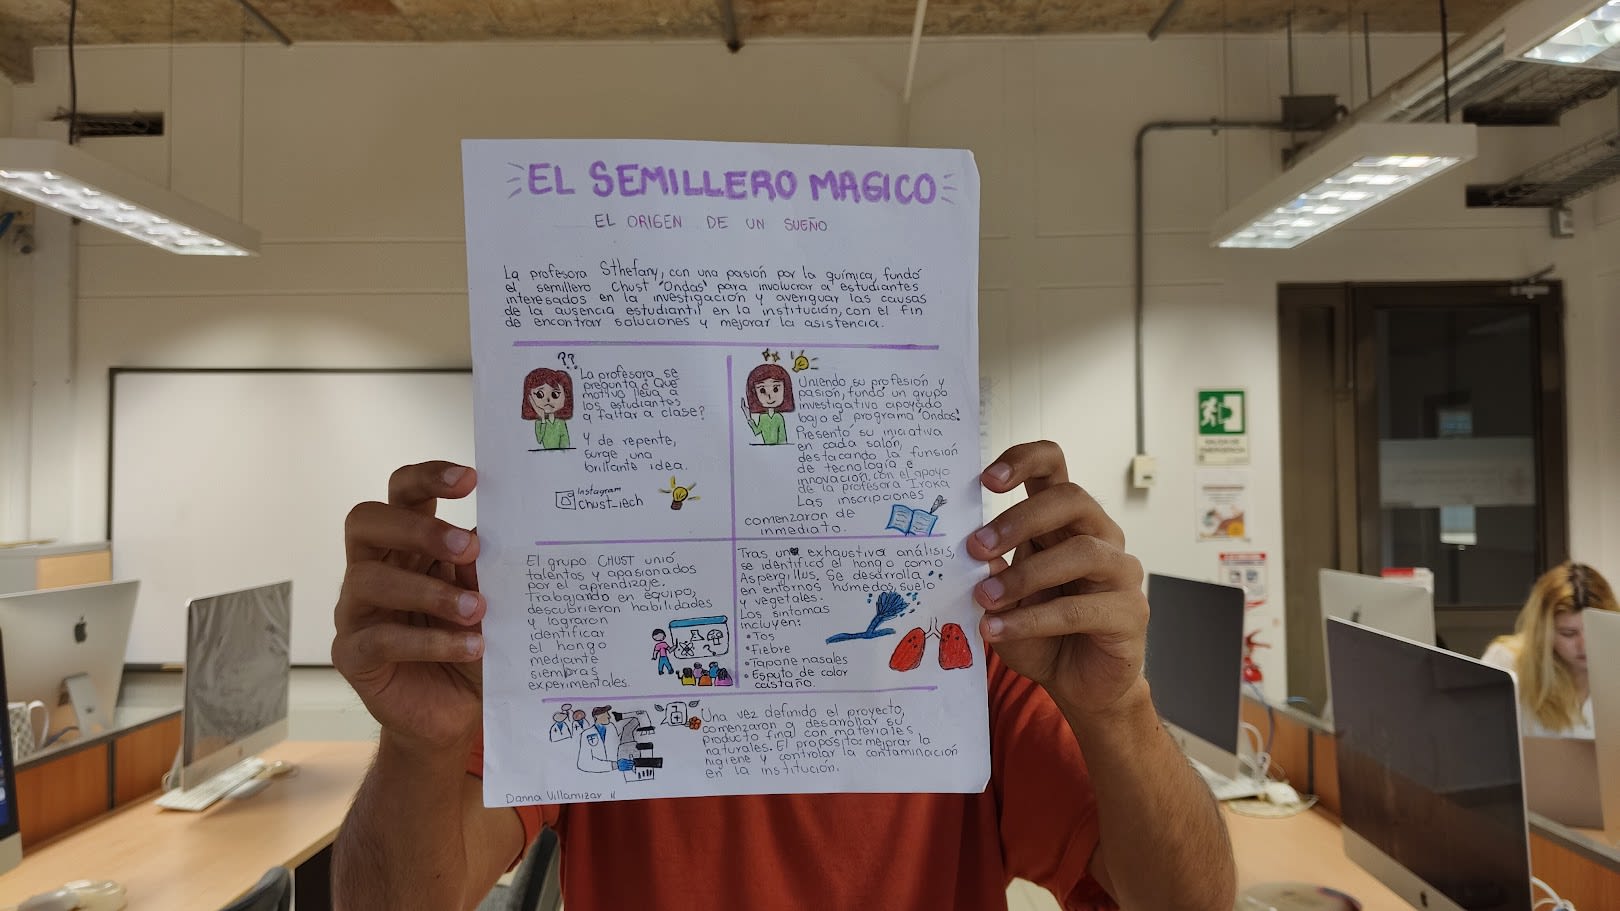 EL SEMILLERO MAGICO
EL ORIGEN DE UN SUEÑO
La profesora Sthefany, con una pasión por la química, fundó
el semillero Chust "Ondas" para involucrar a estudiantes
interesados en la investigación y averiguar las causas
de la ausencia estudiantil en la institución, con el fin
de encontrar soluciones y mejorar la asistencia.
??
La profesora se
pregunta ¿Qué
motivo lleva a
los estudiantes
a faltar a clase?
Y de repente,
surge una
brillante idea.
Instagram
Chust_iech
Uniendo su profesión y
pasión, fundó un grupo
investigativo apoyado
bajo el programa "Ondas".
Presentó su iniciativa
en cada salón,
destacando la funsión
de tecnología e
innovación, con el apoyo
de la profesora
Las inscripciones
comenzaron de
inmediato.
El grupo CHUST unió
talentos y apasionados
por el aprendizaje.
Trabajando en equipo,
descubrieron habilidades
y lograron
identificar
el hongo
mediante
siembras
experimentales.
?
Tras un exhaustivo análisis,
se identificó el hongo como
Aspergillus. Se desarrolla
en entornos húmedos, suelo
y vegetales.
Los síntomas
incluyen:
• Tos
• Fiebre
• Tapone nasales
• Esputo de color
castaño.
Una vez definido el proyecto,
comenzaron a desarrollar su
producto final con materiales
naturales. El propósito: mejorar la
higiene y controlar la contaminación
en la institución.
Danna Villamizar 11
SALIDA DE
EMERGENCIA